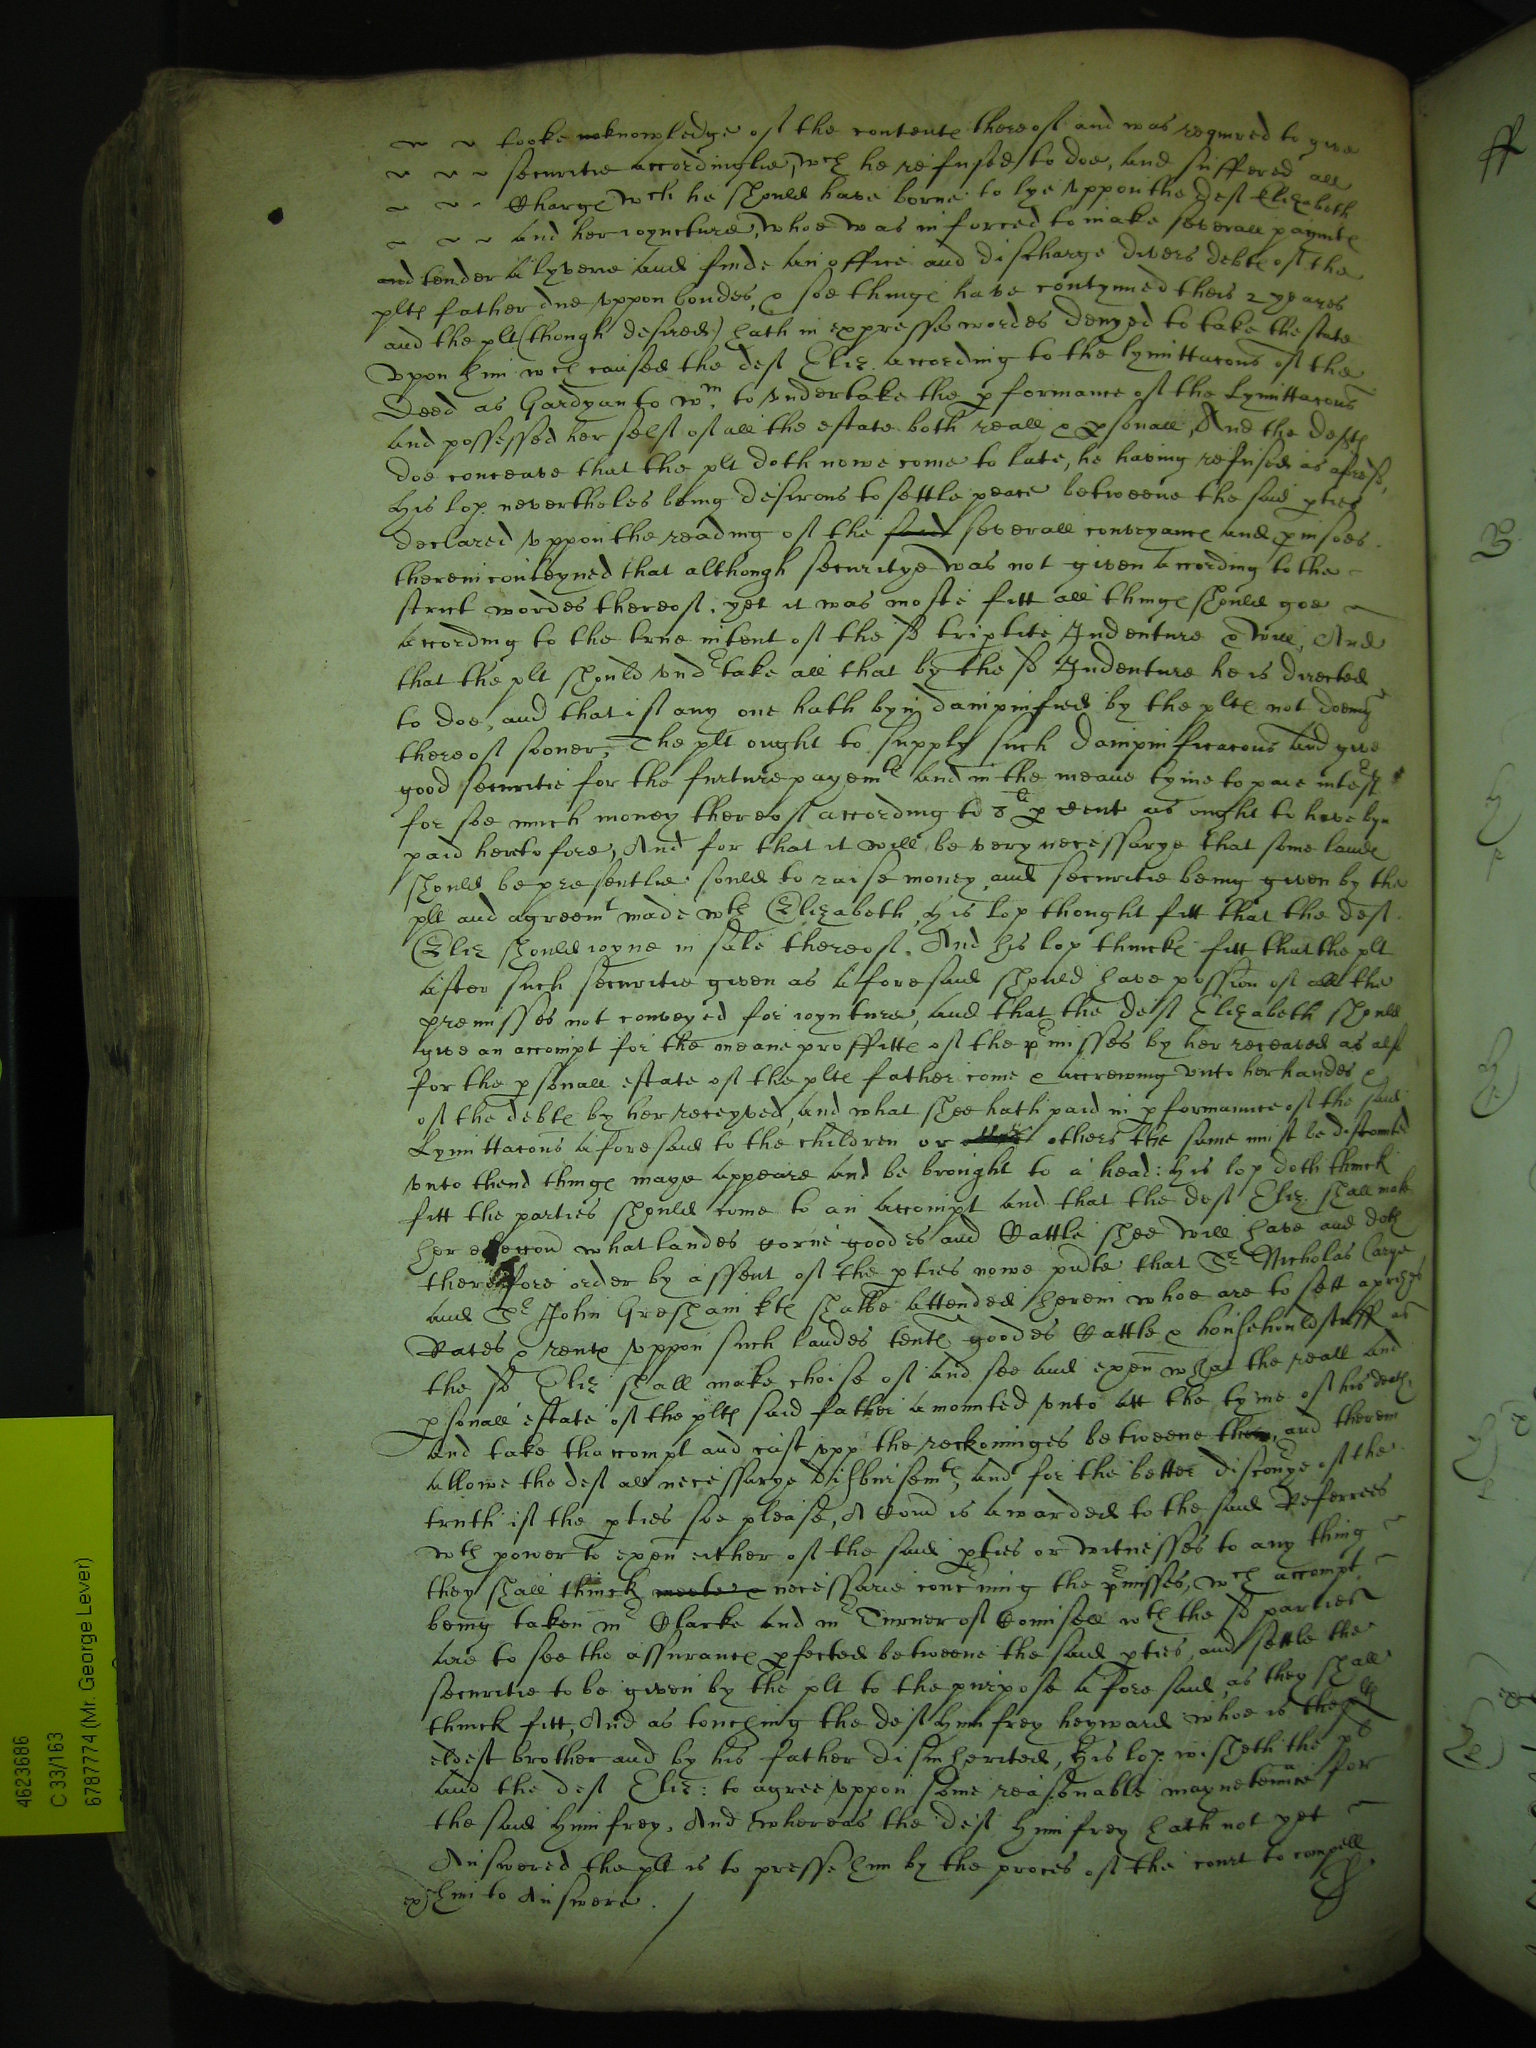 tooke knowledge of the contentes thereof and was required to give
securitie accordinglie, wch he refused to doe, and suffered all
Charges wch he should have borne to lye uppon the Deft Elizabeth
and her ioyncture, whoe was inforced to make severall paymtes
and tender a lyverie and finde an office and discharge divers debtes of the
pltes father due uppon bondes, & soe thinges have contynued theis 2 yeares
and the plt (though desired) hath in expresse wordes denyed to take the state
upon him wch caused the deft Eliz. according to the lymittacons of the
Deed as Gardyan to Wm. to undertake the pformance of the Lymittacons
and possessed her self of all the estate both reall & psonall, And the deftes
doe conceave that the plt doth nowe come to late, he having refused as aforesd,
His lop. nevertheles being desirous to settle peace betweene the said pties
declared uppon the reading of the said severall conveyances and pvisoes
therein conteyned that although securitye was not given according to the
strict wordes thereof, yet it was moste fitt all thinges should goe
according to the true intent of the sd triptite Indenture & will, And
that the plt should undtake all that by the sd Indenture he is directed
to doe, and that if any one hath byn dampnified by the pltes not doeing
thereof sooner, The plt ought to supply such dampnificacons and give
good securitie for the future payemte and in the meane tyme to paie intest
for soe much money thereof according to 8li p cent as ought to have byn
paid heretofore, And for that it will be very necessarye that some landes
should be presentlie sould to raise money, and securitie being given by the
plt and agreemt made wth Elizabeth, His lop thought fitt that the deft
Eliz should ioyne in sale thereof. And his lop thinckes fitt that the plt
after such securitie given as aforesaid should have possion of all the
premisses not conveyed for ioynture, and that the deft Elizabeth should
give an accompt for the meane proffittes of the pmisses by her receaved as also
for the psonall estate of the pltes father come & accrewing unto her handes &
of the debtes by her receyved, and what shee hath paid in pformaunce of the said
Lymittacons aforesaid to the children or others the same must be discompted
unto thend thinges maye appeare and be brought to a head: his lop doth thinck
fitt the parties should come to an accompt and that the deft Eliz. shall make
her eleccon what landes corne goodes and Cattle shee will have and doth
therefore order by assent of the pties nowe pnte that Sr Nicholas Carye
and Sr John Gresham ktes shalbe attended herein whoe are to sett aprizes
Rates & rentes uppon such landes tentes goodes Cattle & househouldstuff as
the sd Eliz shall make choise of and see and exen what the reall and
psonall estate of the pltes said father amounted unto att the tyme of his death,
and take thaccompt and cast upp the reckoninges betweene them, and therein
allowe the deft all necessarye disbursemtes, and for the better discovye of the
truth if the pties soe please, A Comd is awarded to the said Referrees
wth power to exen either of the said pties or witnesses to any thing
they shall thinck necessarie concning the pmisses, wch accompt
being taken mr Clarke and mr Turner of Counsell wth the sd parties
are to see the assurances pfected betweene the said pties, and settle the
securitie to be given by the plt to the purpose aforesaid, as they shall
thinck fitt, And as touching the deft Humfrey heyward whoe is the pltes
eldest brother and by his father disinherited, His lop. wisheth the plt
and the deft Eliz: to agree uppon some reasonable maynetennce for
the said Humfrey. And whereas the deft Humfrey hath not yet
Answered the plt is to presse him by the proces of the court to compell
him to Answere. /
4623686
C 33/163
6787774 (Mr. George Lever)